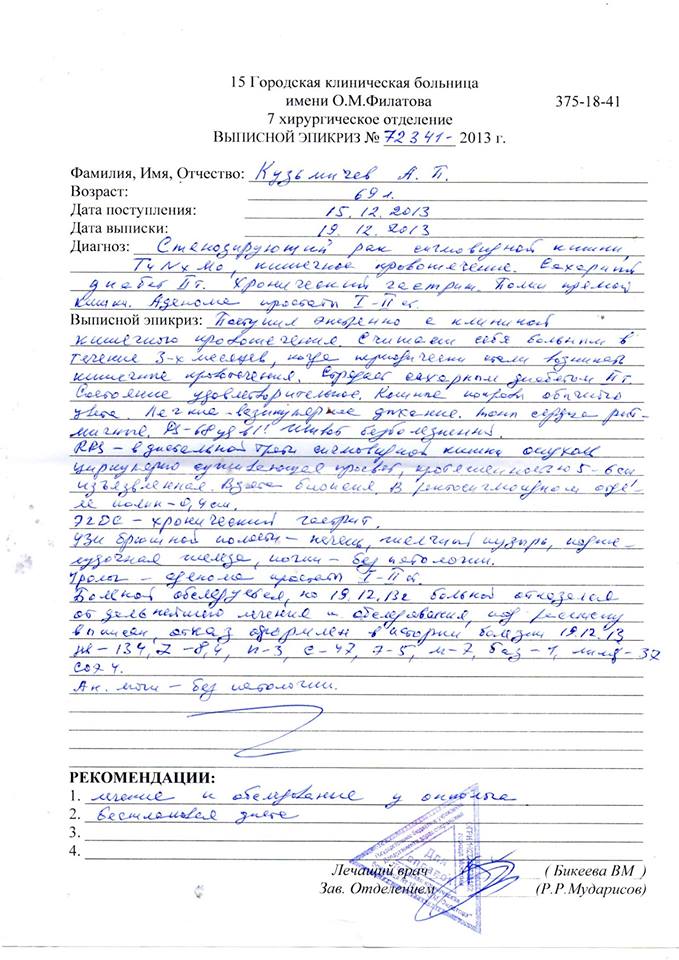 15 Городская клиническая больница
имени О.М.Филатова 375-18-41
7 хирургическое отделение
ВЫПИСНОЙ ЭПИКРИЗ № 72341- 2013 г.
Фамилия, Имя, Отчество: Кузьмичев А. П.
Возраст: 69 л.
Дата поступления: 15. 12. 2013
Дата выписки: 19. 12. 2013
Диагноз: Стенозирующий рак сигмовидной кишки,
T4NxM0, кишечное кровотечение. Сахарный
диабет II т. Хронический гастрит. Полип прямой
кишки. Аденома простаты I-II ст.
Выписной эпикриз: Поступил экстренно с клиникой
кишечного кровотечения. Считает себя больным в
течение 3-х месяцев, когда периодически стали возникать
кишечные кровотечения. Страдает сахарным диабетом II т.
Состояние удовлетворительное. Кожные покровы обычного
цвета. Легкие - везикулярное дыхание. Тоны сердца рит-
мичные. Ps - 68 уд в 1! Живот безболезненный.
RRS - в дистальной трети сигмовидной кишки опухоль
циркулярно суживающая просвет, протяженностью 5-6 см
изъязвленная. Взята биопсия. В ректосигмоидном отде-
ле полип - 0,4 см.
ЭГДС - хронический гастрит.
УЗИ брюшной полости - печень, желчный пузырь, подже-
лудочная железа, почки - без патологии.
Уролог - аденома простаты I-II ст.
Больной обследуется, но 19.12.13г больной отказался
от дальнейшего лечения и обследования, под расписку
выписан, отказ оформлен в истории болезни 19.12.13
- 134, - 8,4, п-3, с-47, э-5, м-7, баз-1, лимф-37
СОЭ 4.
Ан. мочи - без патологии.
РЕКОМЕНДАЦИИ:
1. лечение и обследование у онколога
2. бесшлаковая диета
3.
4.
Лечащий врач ( Бикеева ВМ )
Зав. Отделением (Р.Р.Мударисов)